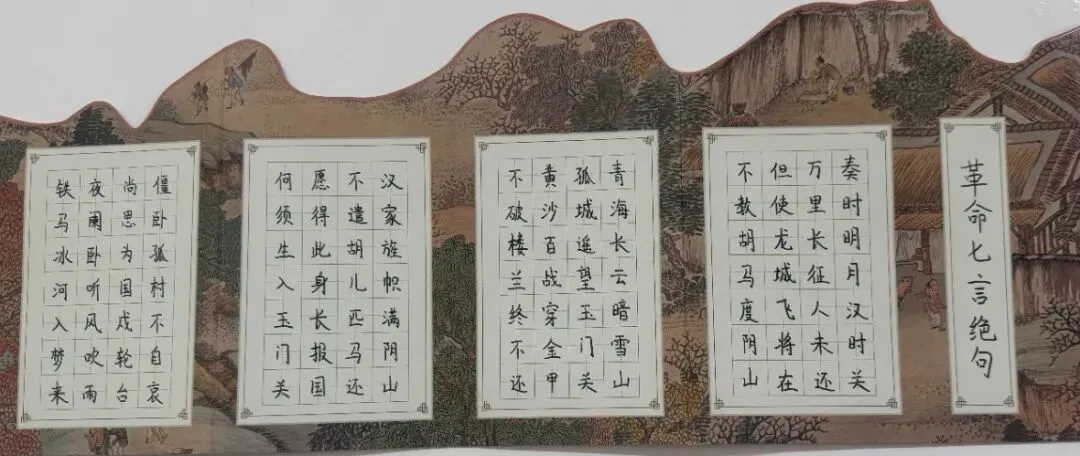 革命七言绝句
秦时明月汉时关
万里长征人未还
但使龙城飞将在
不教胡马度阴山
青海长云暗雪山
孤城遥望玉门关
黄沙百战穿金甲
不破楼兰终不还
汉家旌帜满阴山
不遣胡儿匹马还
愿得此身长报国
何须生入玉门关
僵卧孤村不自哀
尚思为国戍轮台
夜阑卧听风吹雨
铁马冰河入梦来